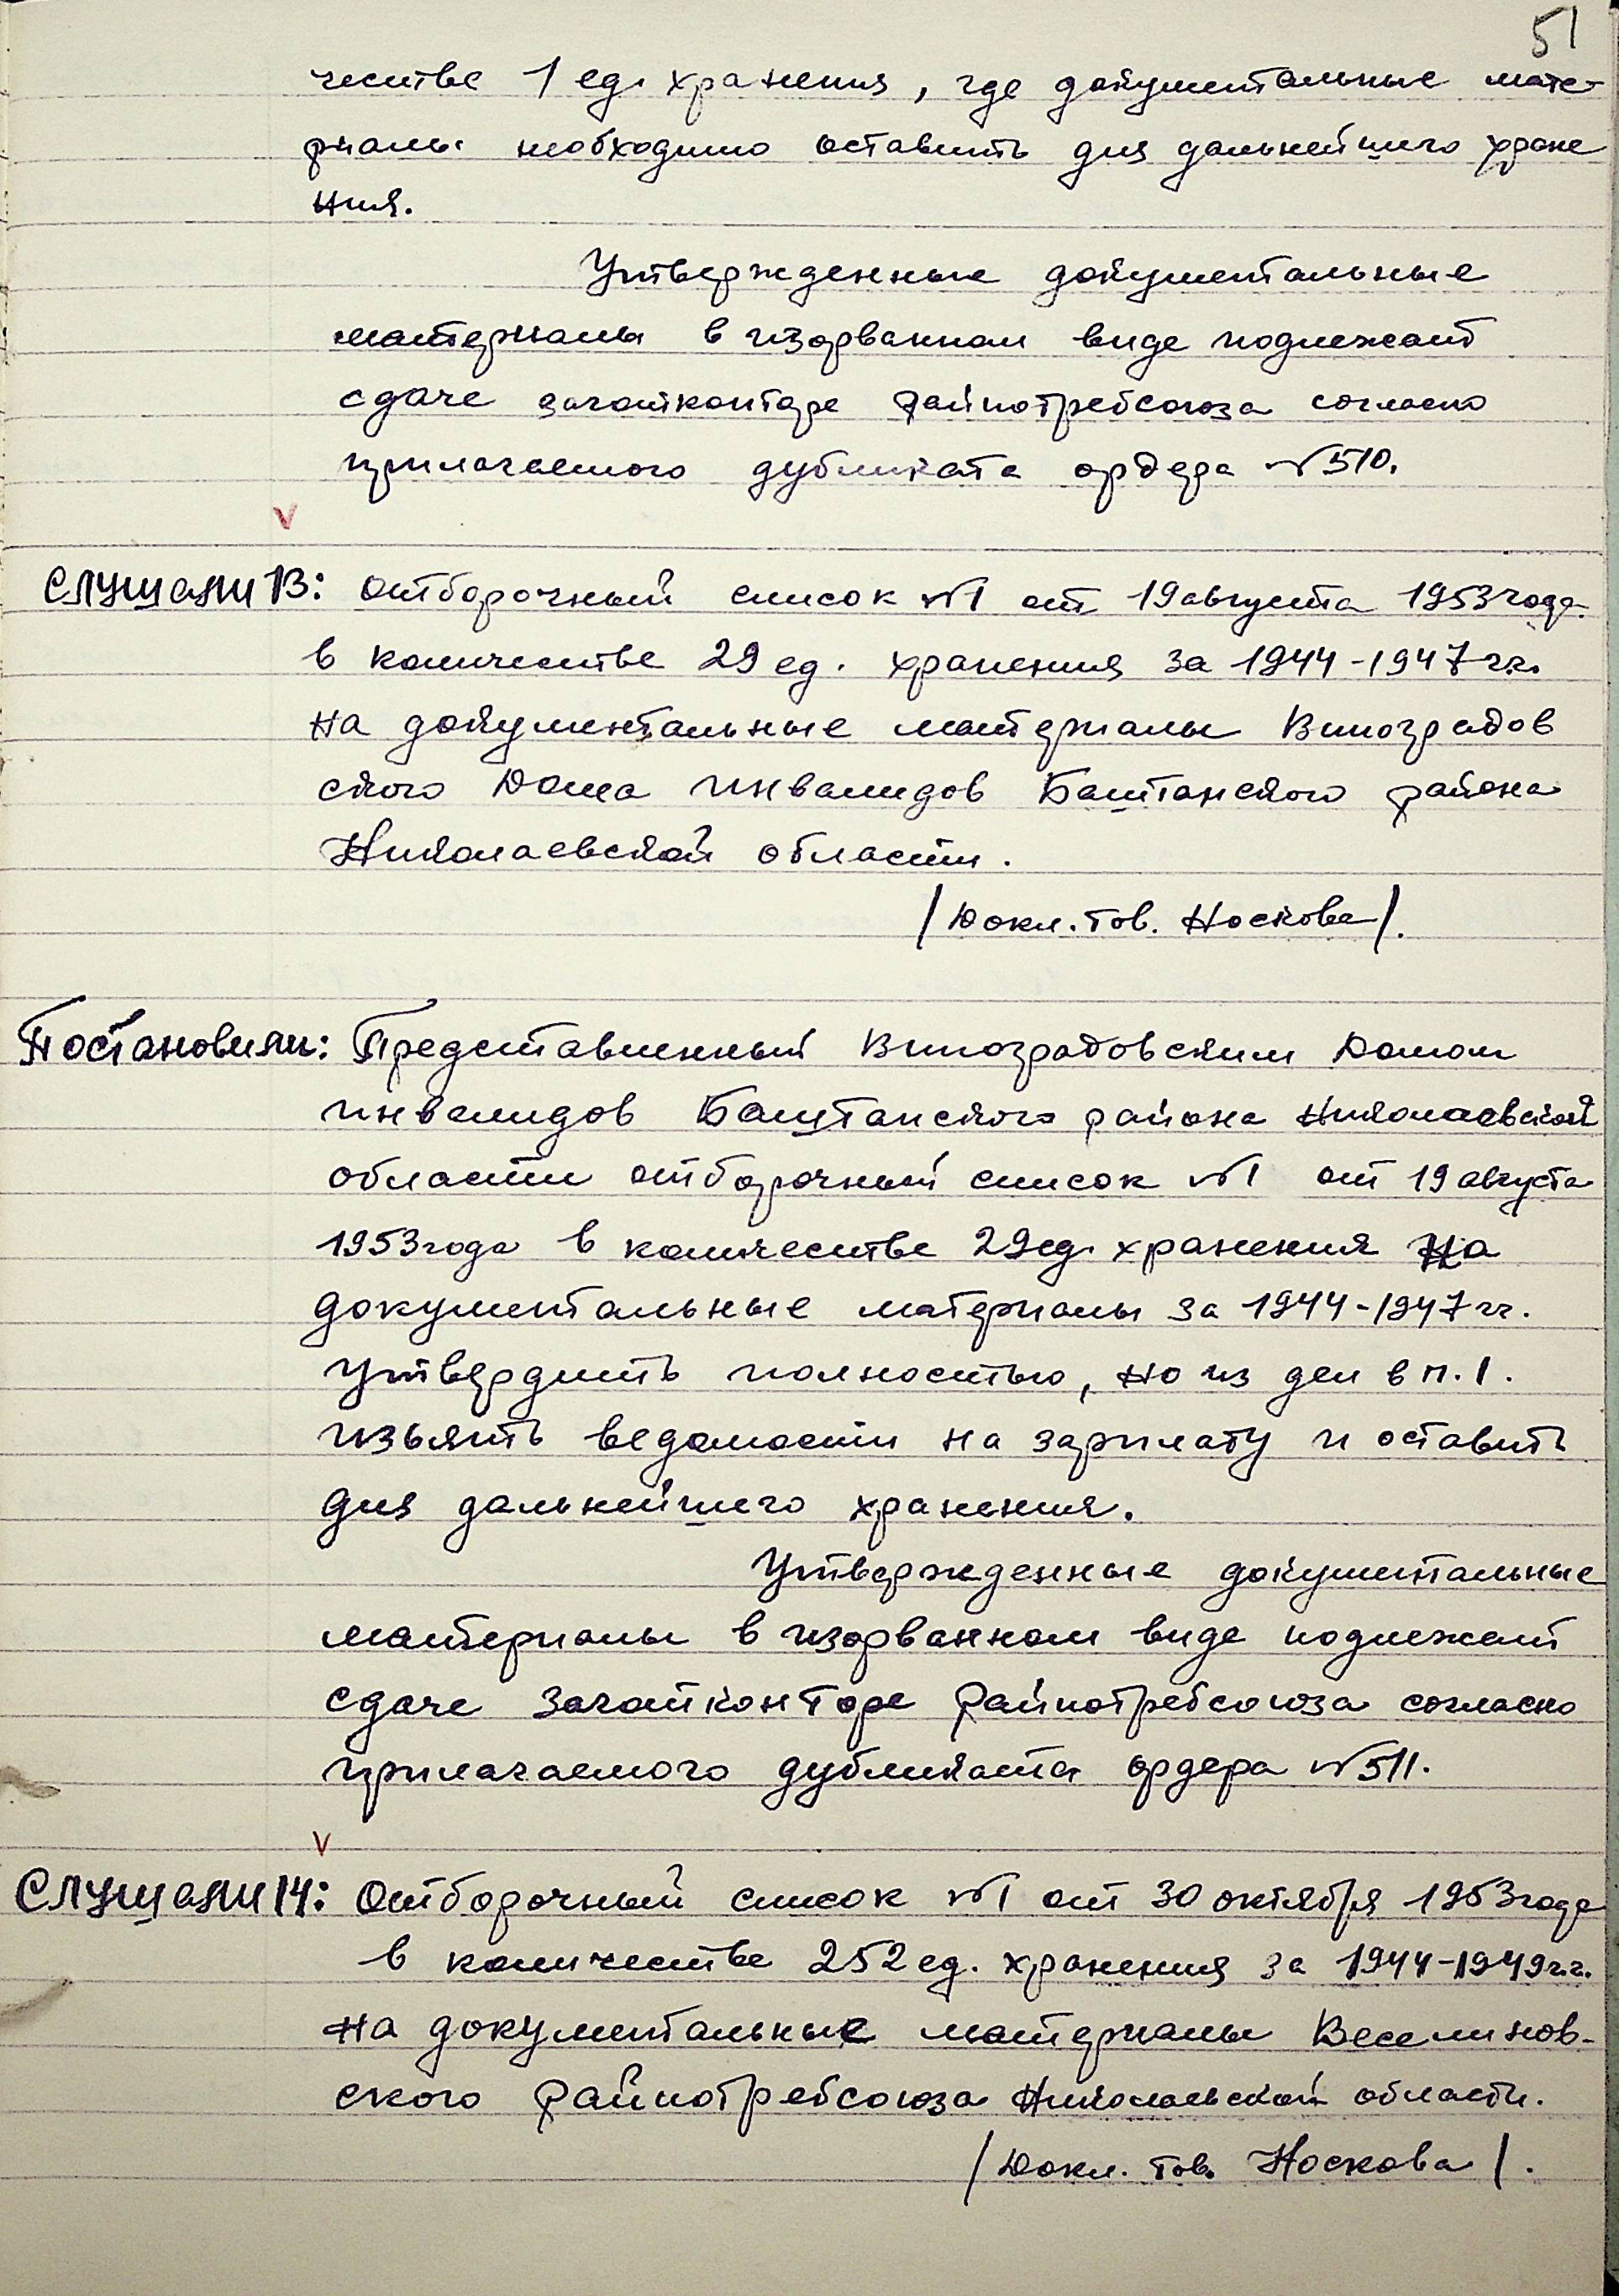 51
честве 1 ед. хранения, где документальные мате-
риалы необходимо оставить для дальнейшего хране
ния.
Утвержденные документальные
материалы в изорванном виде подлежат
сдаче заготконторе Райпотребсоюза согласно
прилагаемого дубликата ордера №510.
V
Слушали 13: Отборочный список №1 от 19 августа 1953 года
в количестве 29 ед. хранения за 1944-1947 г.г.
на документальные материалы Виноградов
ского Дома инвалидов Баштанского района
Николаевской области.
/Докл. тов. Носкова/.
Постановили: Представленный Виноградовским Домом
инвалидов Баштанского района Николаевской
области отборочный список №1 от 19 августа
1953 года в количестве 29 ед. хранения на
документальные материалы за 1944-1947 гг.
Утвердить полностью, но из дел в п. 1.
изъять ведомости на зарплату и оставить
для дальнейшего хранения.
Утвержденные документальные
материалы в изорванном виде подлежат
сдаче Заготконторе Райпотребсоюза согласно
прилагаемого дубликата ордера №511.
V
Слушали 14: Отборочный список №1 от 30 октября 1953 года
в количестве 252 ед. хранения за 1944-1949 г.г.
на документальные материалы Веселинов-
ского Райпотребсоюза Николаевской области.
/Докл. тов. Носкова/.